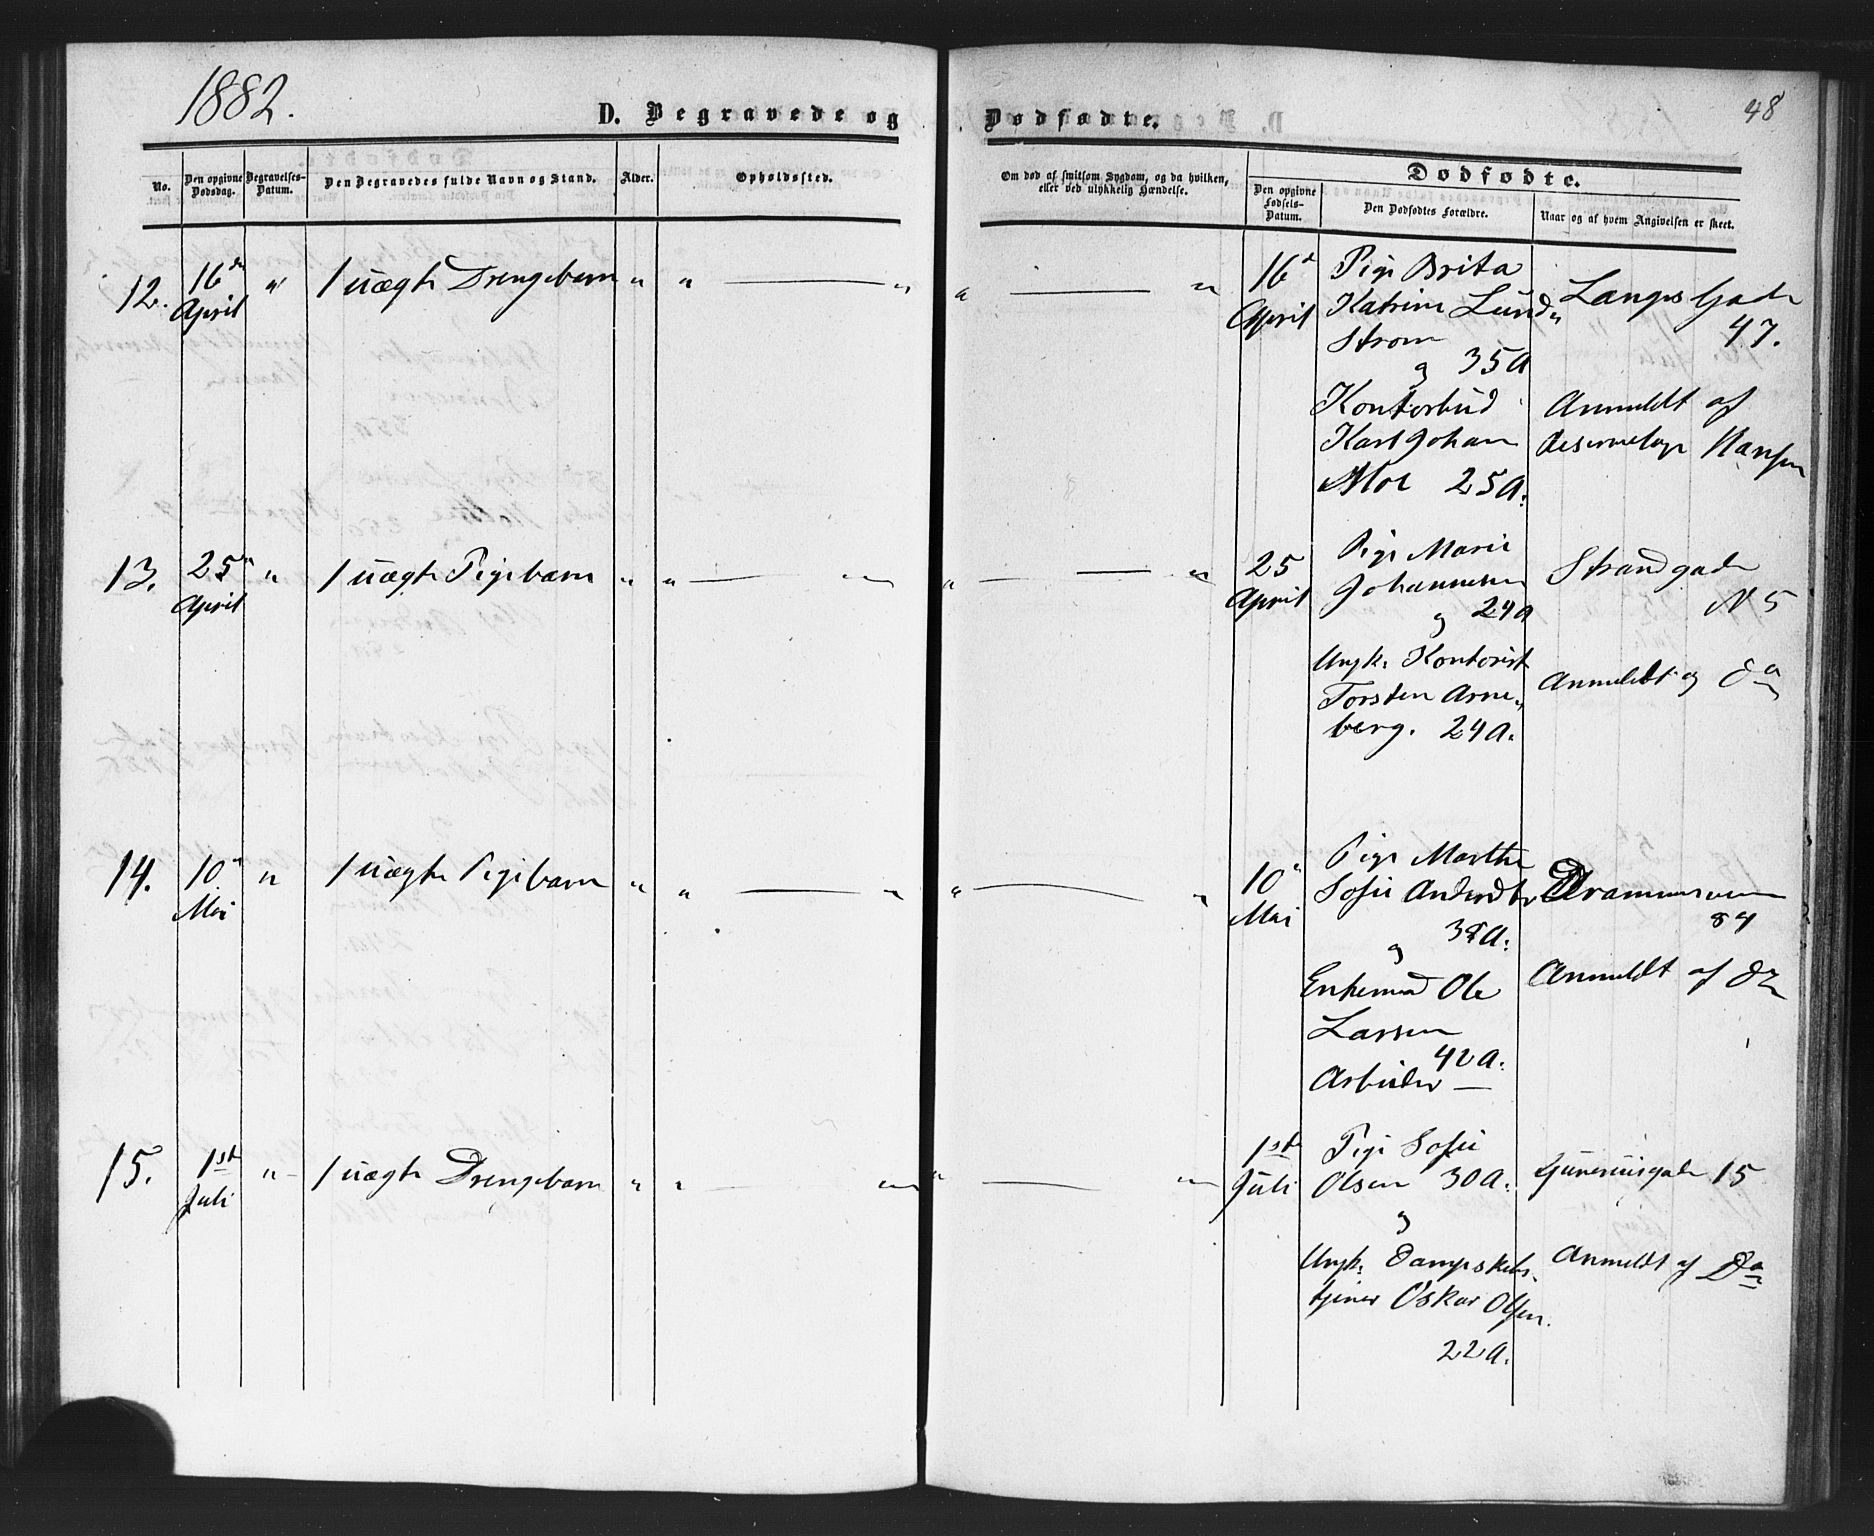 1882.
D. Begravede og Dødfødte.
48
No.
Den opgivne Dødsdag.
Begravelses-Datum.
Den Begravedes fulde Navn og Stand.
Alder.
Opholdssted.
Om død af smitsom Sygdom, og da hvilken, eller ved ulykkelig Hændelse.
Dødfødte.
Den opgivne Fødsels-Datum.
Den Dødfødtes Forældre.
Naar og af hvem Angivelsen er skeet.
12. 16de April " 1 uægte Drengebarn " " — " " — "
16d April
Pige Brita
Katrine Lund„
Strøm
og 35 A
Kontorbud
Karl Johan
Moe 25 A.
Langes Gade
47.
Anmeldt af
Reservelæge Hansen
13. 25 April " 1 uægte Pigebarn " " — " " — "
25 April
Pige Marie
Johannesen
og 24 A
Ungk. Kontorist
Torsten Arne„
berg. 24 A.
Strandgade
N 5
Anmeldt af do
14. 10 Mai " 1 uægte Pigebarn " " — " " — "
10 Mai
Pige Marthe
Sofie Andersdtr
og 38 A.
Enkemand Ole
Larsen
42 A.
Arbeider —
Drammensveien
84
Anmeldt af do
15. 1ste Juli " 1 uægte Drengebarn " " — " " — "
1ste Juli
Pige Sofie
Olsen 30 A.
og
Ungk. Dampskibs-
tjener Oskar Olsen.
22 A.
Huneniusgade 15
Anmeldt af Do